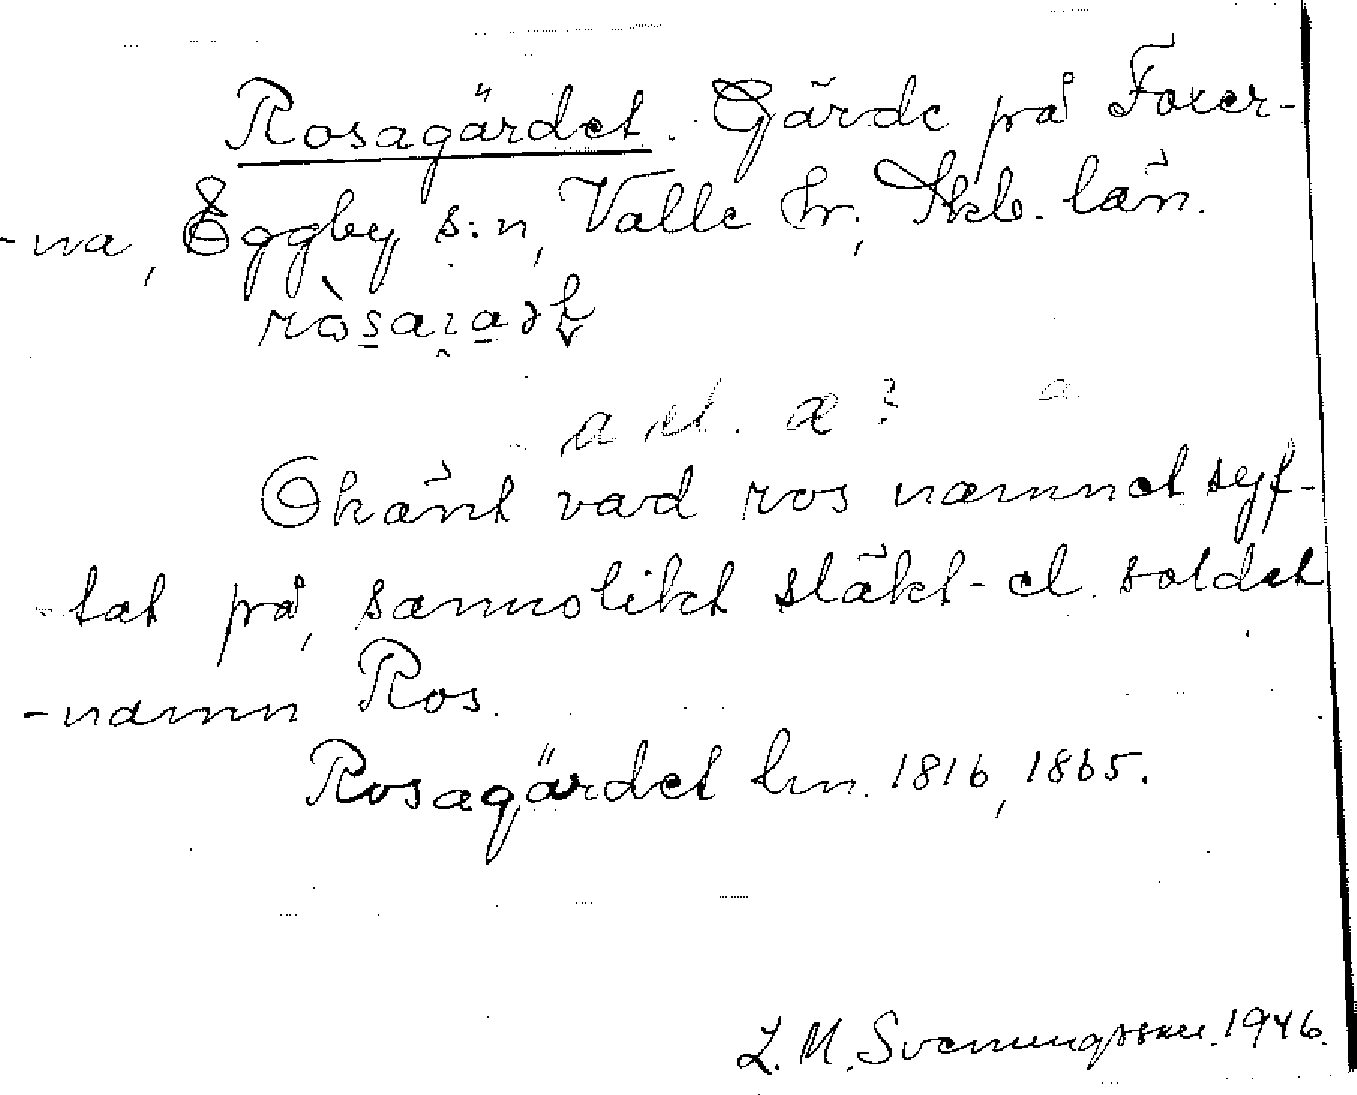 Rosagärdet. Gärde på Foxer-
-na, Eggby s:n, Valle hr, Skb. län.
a el. æ?
Okänt vad ros namnet syf-
-tat på, sannolikt släkt- el. soldat
-namn Ros.
Rosagärdet lm. 1816, 1865.
L. M. Svenungsson. 1946.